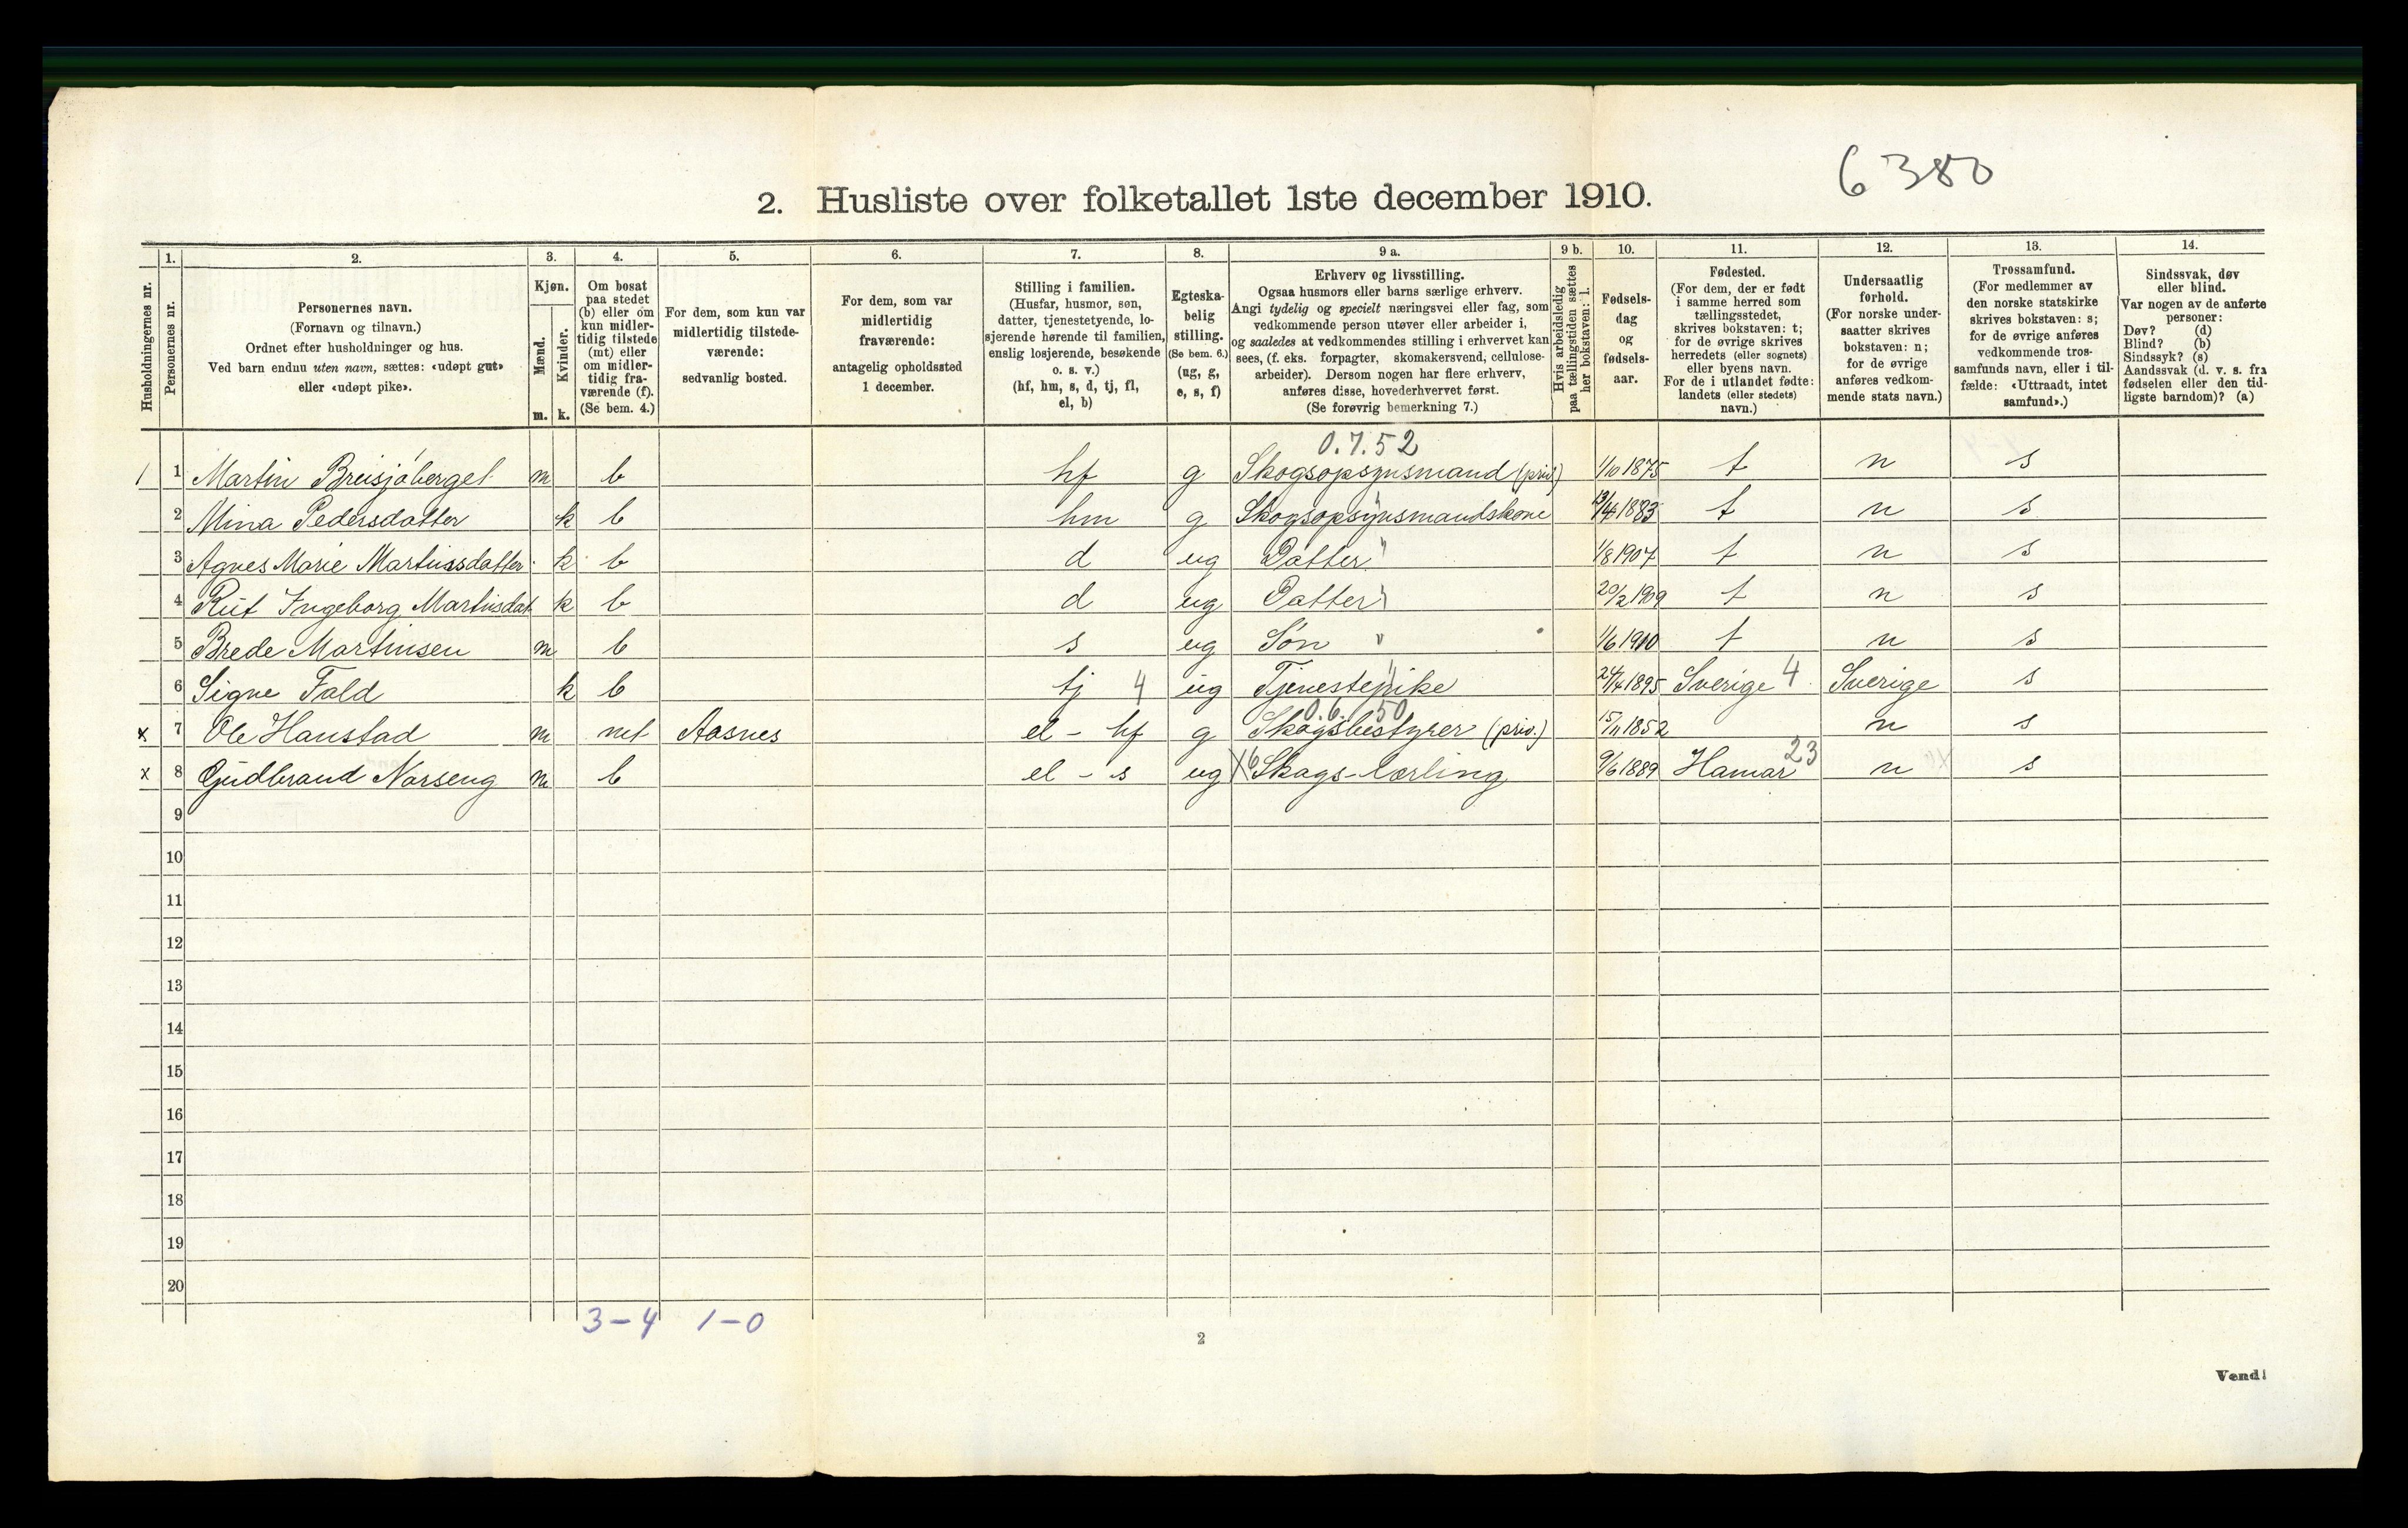 6380
2. Husliste over folketallet 1ste december 1910.
1. 2. 3. 4. 5. 6. 7. 8. 9 a. 9 b. 10. 11. 12. 13. 14.
Husholdningernes nr.
Personernes nr.
Personernes navn.
(Fornavn og tilnavn.)
Ordnet efter husholdninger og hus.
Ved barn endnu uten navn, sættes: «udøpt gut»
eller «udøpt pike».
Kjøn.
Mænd.
Kvinder.
m. k.
Om bosat
paa stedet
(b) eller om
kun midler-
tidig tilstede
(mt) eller
om midler-
tidig fra-
værende (f).
(Se bem. 4.)
For dem, som kun var
midlertidig tilstede-
værende:
sedvanlig bosted.
For dem, som var
midlertidig
fraværende:
antagelig opholdssted
1 december.
Stilling i familien.
(Husfar, husmor, søn,
datter, tjenestetyende, lo-
sjerende hørende til familien,
enslig losjerende, besøkende
o. s. v.)
(hf, hm, s, d, tj, fl,
el, b)
Egteska-
belig
stilling.
(Se bem. 6.)
(ug, g,
e, s, f)
Erhverv og livsstilling.
Ogsaa husmors eller barns særlige erhverv.
Angi tydelig og specielt næringsvei eller fag, som
vedkommende person utøver eller arbeider i,
og saaledes at vedkommendes stilling i erhvervet kan
sees, (f. eks. forpagter, skomakersvend, cellulose-
arbeider). Dersom nogen har flere erhverv,
anføres disse, hovederhvervet først.
(Se forøvrig bemerkning 7.)
Hvis arbeidsledig
paa tællingstiden sættes
her bokstaven: l.
Fødsels-
dag
og
fødsels-
aar.
Fødested.
(For dem, der er født
i samme herred som
tællingsstedet,
skrives bokstaven: t;
for de øvrige skrives
herredets (eller sognets)
eller byens navn.
For de i utlandet fødte:
landets (eller stedets)
navn.)
Undersaatlig
forhold.
(For norske under-
saatter skrives
bokstaven: n;
for de øvrige
anføres vedkom-
mende stats navn.)
Trossamfund.
(For medlemmer av
den norske statskirke
skrives bokstaven: s;
for de øvrige anføres
vedkommende tros-
samfunds navn, eller i til-
fælde: «Uttraadt, intet
samfund».)
Sindssvak, døv
eller blind.
Var nogen av de anførte
personer:
Døv? (d)
Blind? (b)
Sindssyk? (s)
Aandssvak (d. v. s. fra
fødselen eller den tid-
ligste barndom)? (a)
0.7.52
1 1 Martin Breisjöberget m b hf g Skogsopsynsmand (priv) 1/10 1875 t n s
2 Mina Pedersdatter k b hm g Skogsopsynsmandskone 13/4 1883 t n s
3 Agnes Marie Martinsdatter k b d ug Datter " 1/8 1907 t n s
4 Rut Ingeborg Martinsdat k b d ug Datter " 20/2 1909 t n s
5 Brede Martinsen m b s ug Søn " 1/6 1910 t n s
6 Signe Fald k b tj 4 ug Tjenestepike 24/4 1895 Sverige 4 Sverige s
0.6.50
x 7 Ole Hanstad m mt Aasnes el - hf g Skogsbestyrer (priv.) 15/11 1852 n s
x 8 Gudbrand Norseng m b el - s ug X6 Skogs-lærling 9/6 1889 Hamar 23 n s
9
10
11
12
13
14
15
16
17
18
19
20
3-4 1-0
2
Vend!